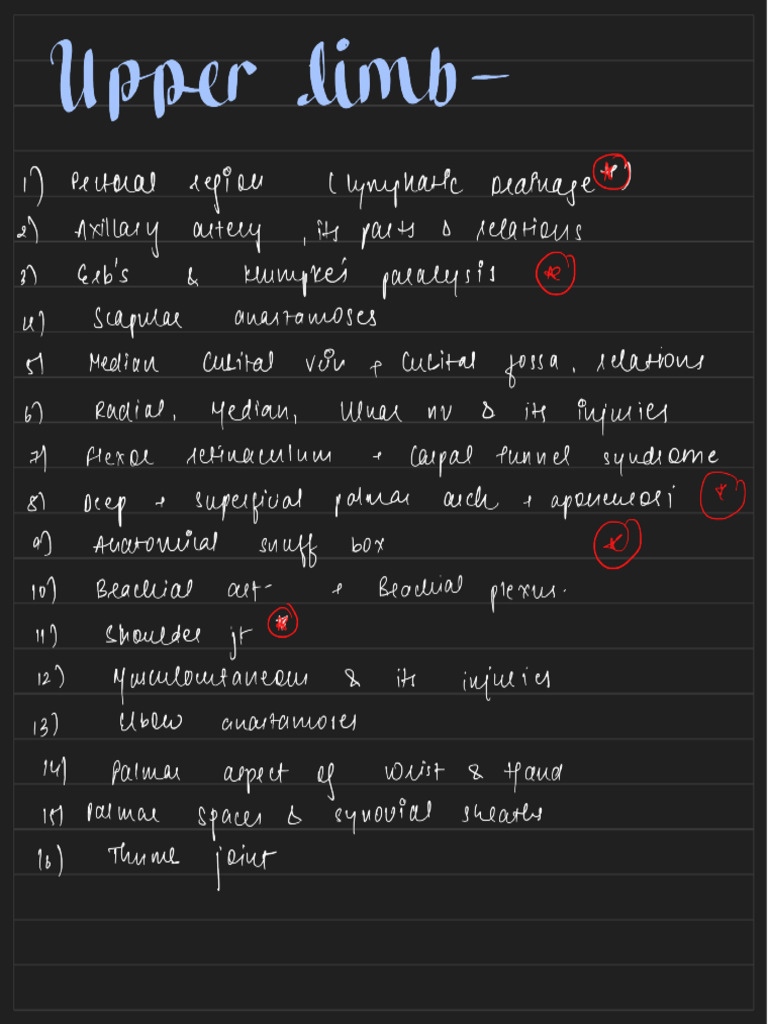 Upper limb -
1) Pectoral region (lymphatic Drainage *)
2) Axillary artery, its parts & relations
3) Erb's & Klumpke's paralysis *
4) Scapular anastamoses
5) Median Cubital vein + Cubital fossa, relations
6) Radial, Median, Ulnar nv & its injuries
7) Flexor retinaculum + Carpal tunnel syndrome
8) Deep + superficial palmar arch + aponeurosi *
9) Anatomical snuff box *
10) Brachial art- + Brachial plexus.
11) Shoulder jt *
12) Musculocutaneous & its injuries
13) Elbow anastamoses
14) Palmar aspect of Wrist & Hand
15) Palmar spaces & synovial sheaths
16) Thumb joint